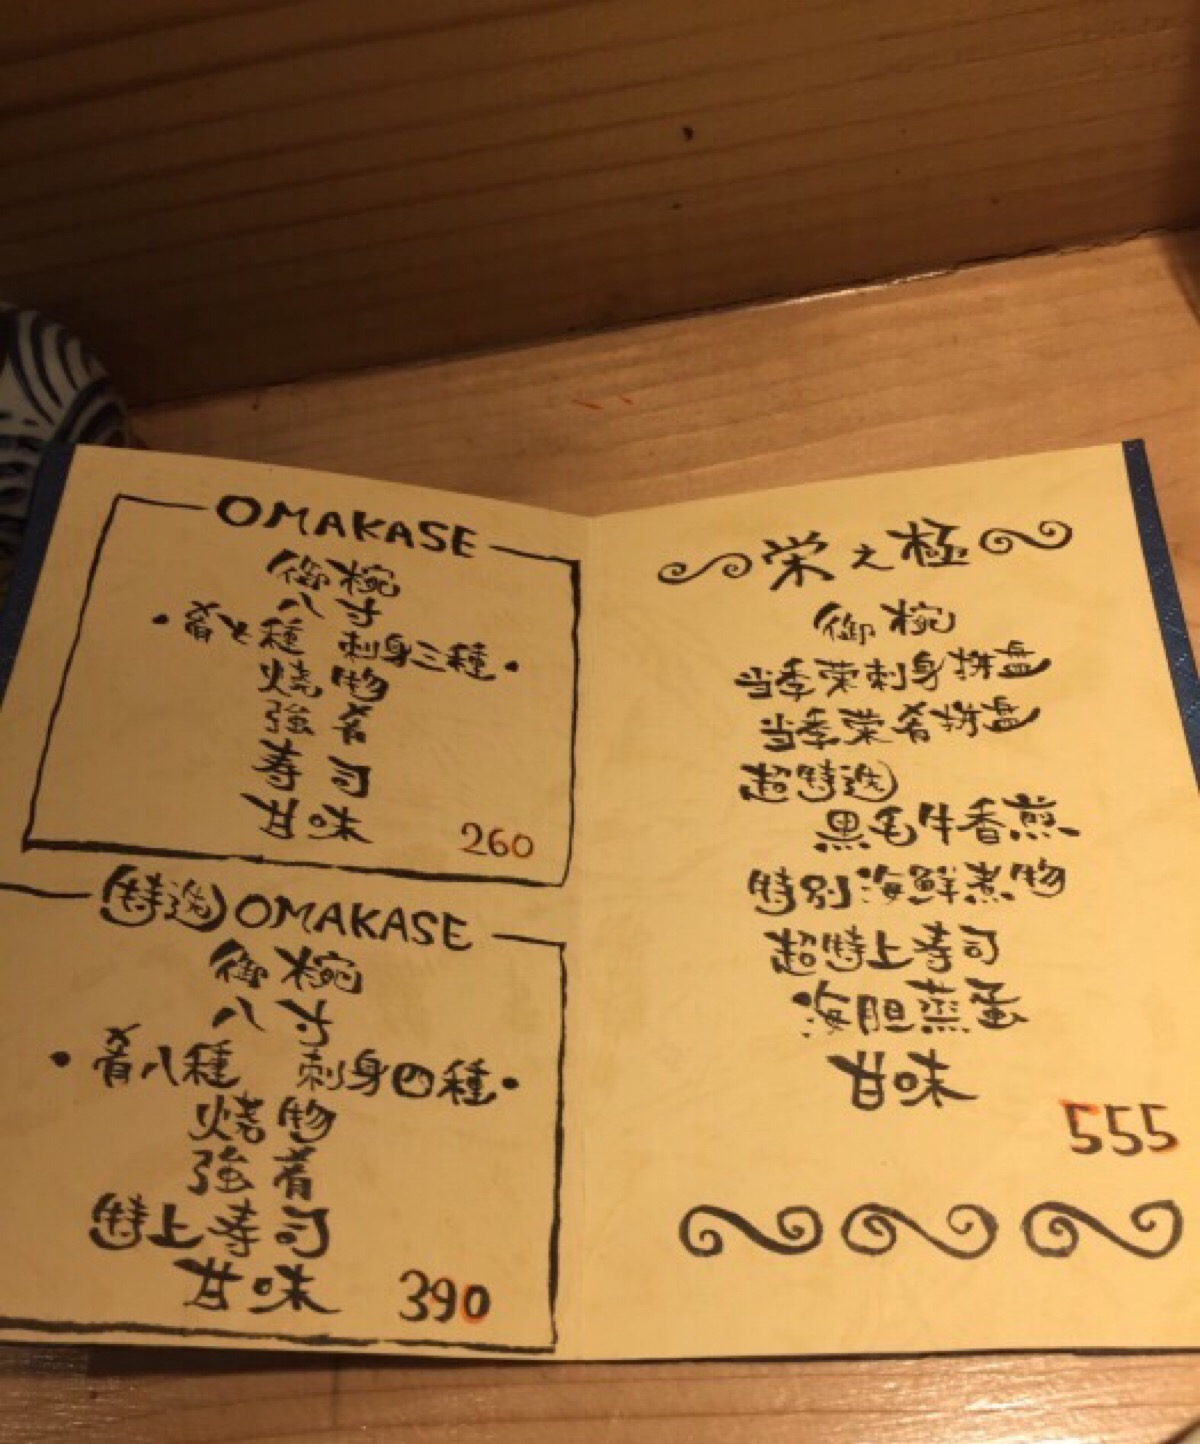 OMAKASE
御椀
八寸
・肴七種 刺身三種・
焼物
強肴
寿司
甘味
260
特选OMAKASE
御椀
八寸
・肴八種 刺身四種・
焼物
強肴
特上寿司
甘味
390
栄之極
御椀
当季栄刺身拼盘
当季栄肴拼盘
超特选
黒毛牛香煎
特別海鮮煮物
超特上寿司
海胆蒸蛋
甘味
555